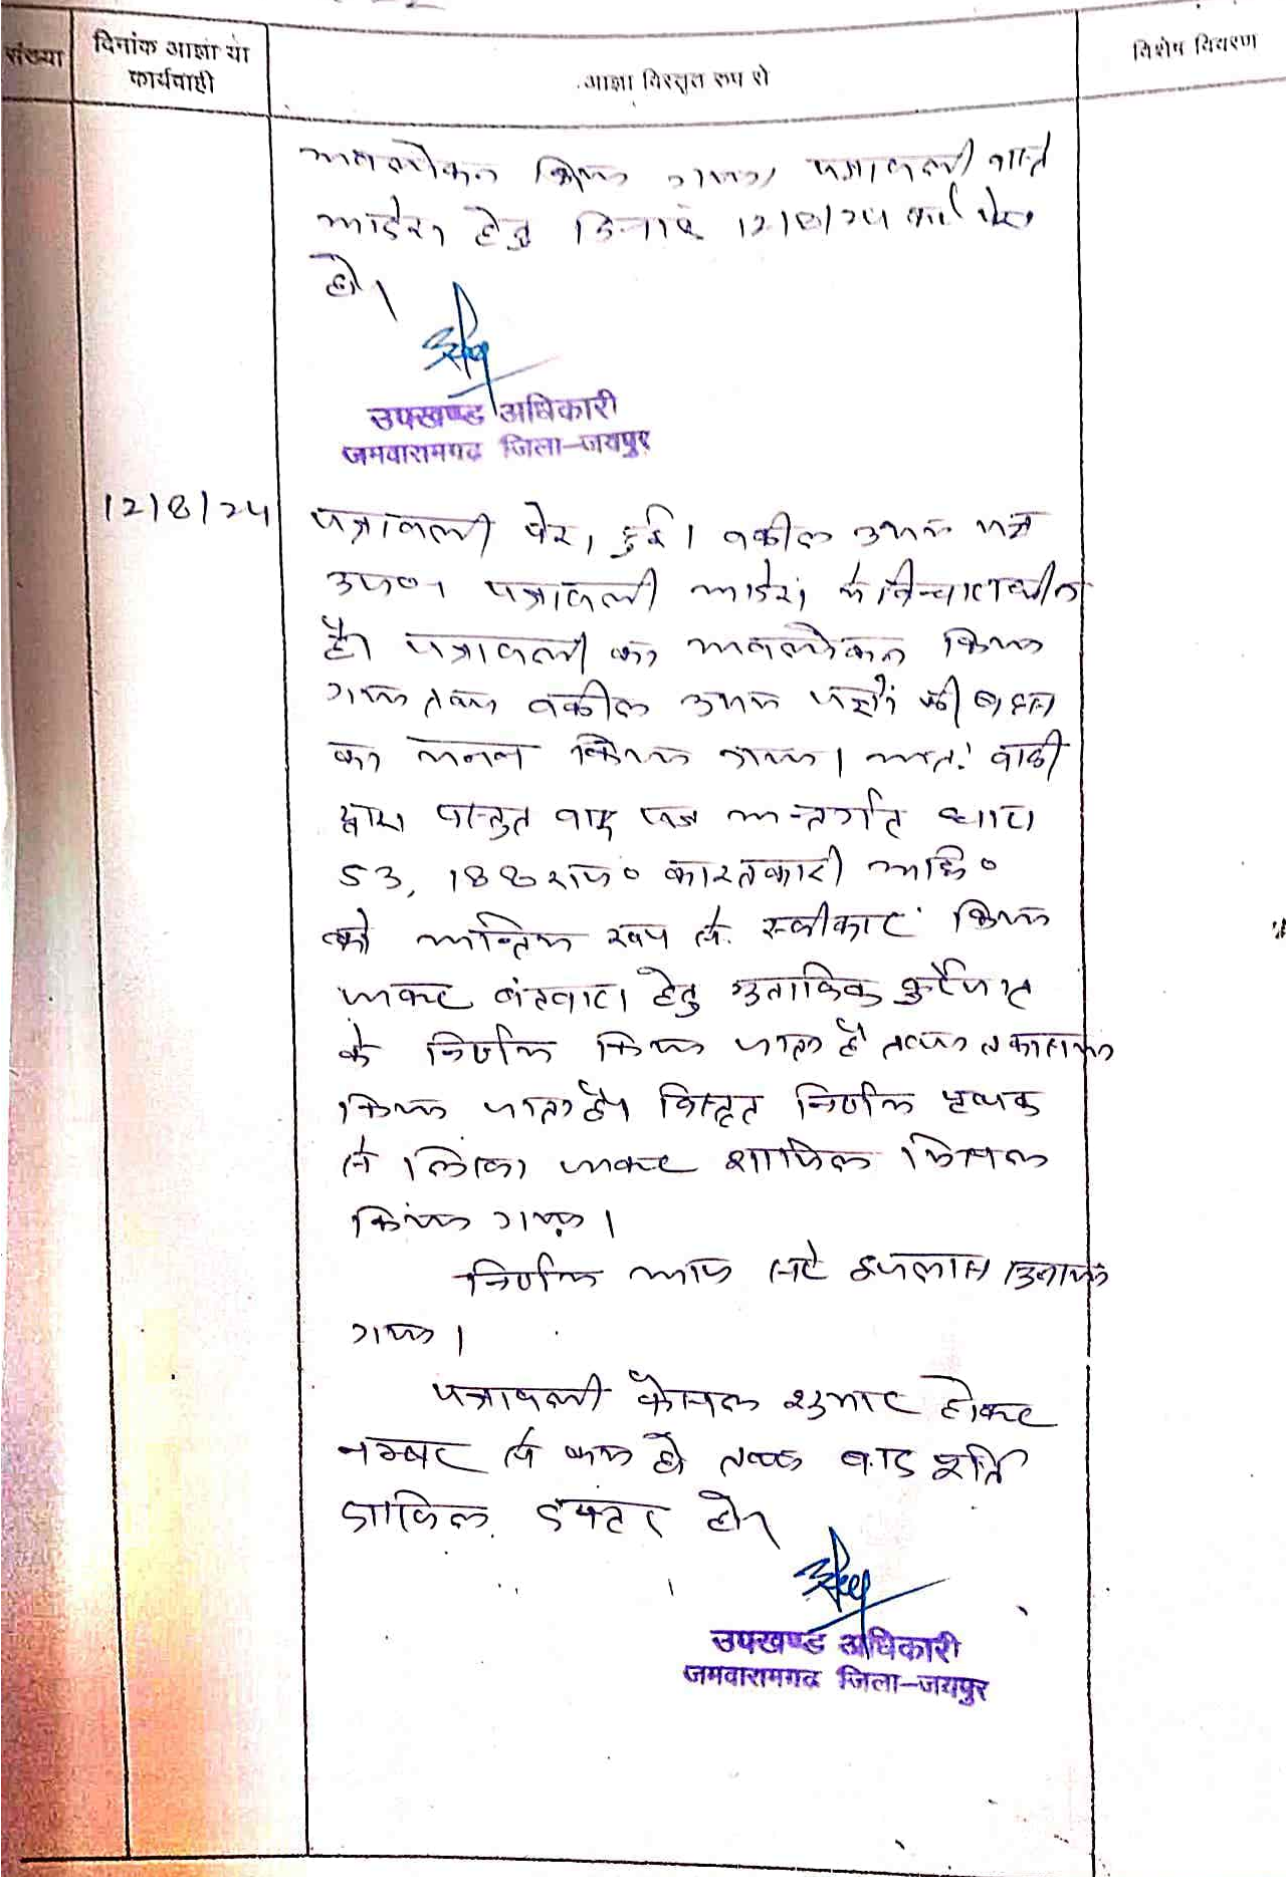 संख्या
दिनांक आज्ञा या
कार्यवाही
आज्ञा विस्तृत रूप से
विशेष विवरण
अवलोकन किया गया। पत्रावली वास्ते
आदेश हेतु दिनांक 12/8/24 को पेश
हो।
उपखण्ड अधिकारी
जमवारामगढ जिला-जयपुर
12/8/24
पत्रावली पेश हुई। वकील उभय पक्ष
उप०। पत्रावली आदेश में विचाराधीन
है। पत्रावली का अवलोकन किया
गया तथा वकील उभय पक्षों की बहस
का मनन किया गया। अतः वादी
द्वारा प्रस्तुत वाद पत्र अन्तर्गत धारा
53, 188 राज० काश्तकारी अधि०
को अन्तिम रूप से स्वीकार किया
जाकर बंटवारा हेतु मुताबिक कुर्रेजात
के निर्णय किया जाता है तथा
किया जाता है। विस्तृत निर्णय पृथक
से लिखा जाकर शामिल मिसल
किया गया।
निर्णय आज सरे इजलास सुनाया
गया।
पत्रावली फैसल शुमार होकर
नम्बर से कम हो तथा बाद
दाखिल दफ्तर हो।
उपखण्ड अधिकारी
जमवारामगढ जिला-जयपुर